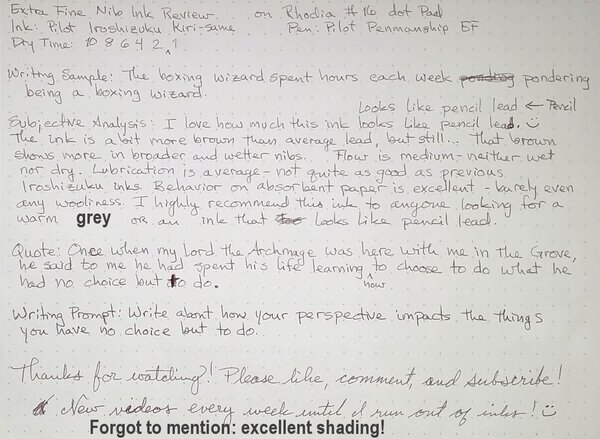 Extra Fine Nib Ink Review on Rhodia #16 dot Pad
Ink: Pilot Iroshizuku Kiri-same Pen: Pilot Penmanship EF
Dry Time: 10 8 6 4 2 1
Writing Sample: The boxing wizard spent hours each week pondering
being a boxing wizard.
Looks like pencil lead ← Pencil
Subjective Analysis: I love how much this ink looks like pencil lead. :)
The ink is a bit more brown than average lead, but still... That brown
shows more in broader and wetter nibs. Flow is medium - neither wet
nor dry. Lubrication is average - not quite as good as previous
Iroshizuku inks. Behavior on absorbent paper is excellent - barely even
any wooliness. I highly recommend this ink to anyone looking for a
warm grey or an ink that looks like pencil lead.
Quote: Once when my lord the Archmage was here with me in The Grove,
he said to me he had spent his life learning how to choose to do what he
had no choice but to do.
Writing Prompt: Write about how your perspective impacts the things
you have no choice but to do.
Thanks for watching! Please like, comment, and subscribe!
New videos every week until I run out of inks! :)
Forgot to mention: excellent shading!